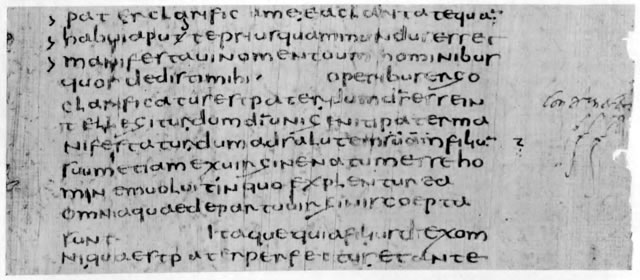 pater clarifica me ea claritate qua
habui apud te priusquam mundus esset
manifestaui nomen tuum hominibus
quos dedisti mihi · operibus ergo
clarificatus est pater dum ds esse in
tellegitur dum di unigeniti pater ma
nifestatur dum ad salutem filiu
suum etiam ex uirgine natum esse ho
minem uoluit in quo explentur ea
omnia quae de partu uirginis coepta
sunt Itaque quia filius di ex om
ni qua est pater perfectus et ante